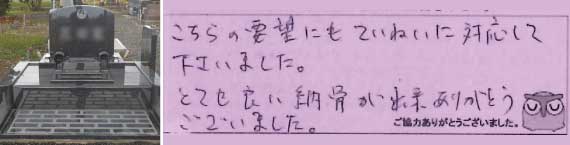 こちらの要望にもていねいに対応して
下さいました。
とても良い納骨が出来ありがとう
ございました。
ご協力ありがとうございました。